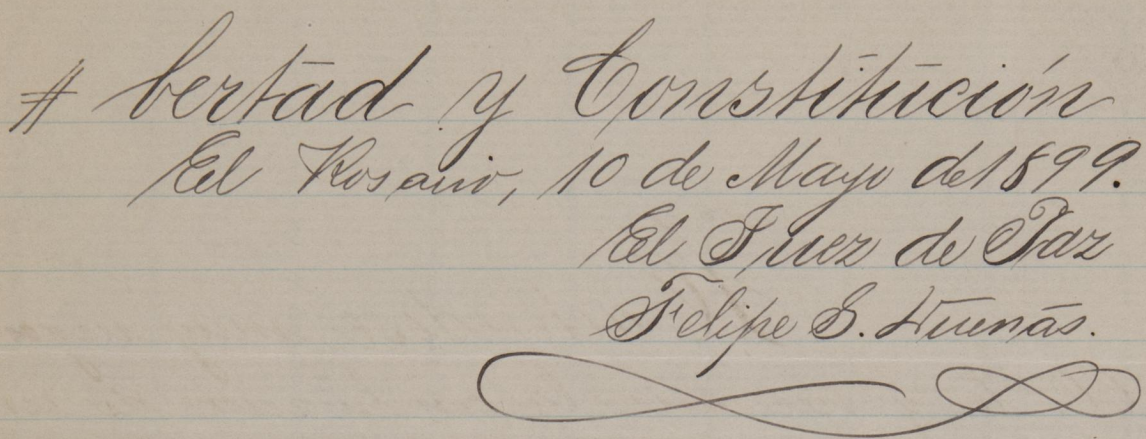 # bertad y Constitución
El Rosario, 10 de Mayo de 1899.
El Juez de Paz
Felipe S.